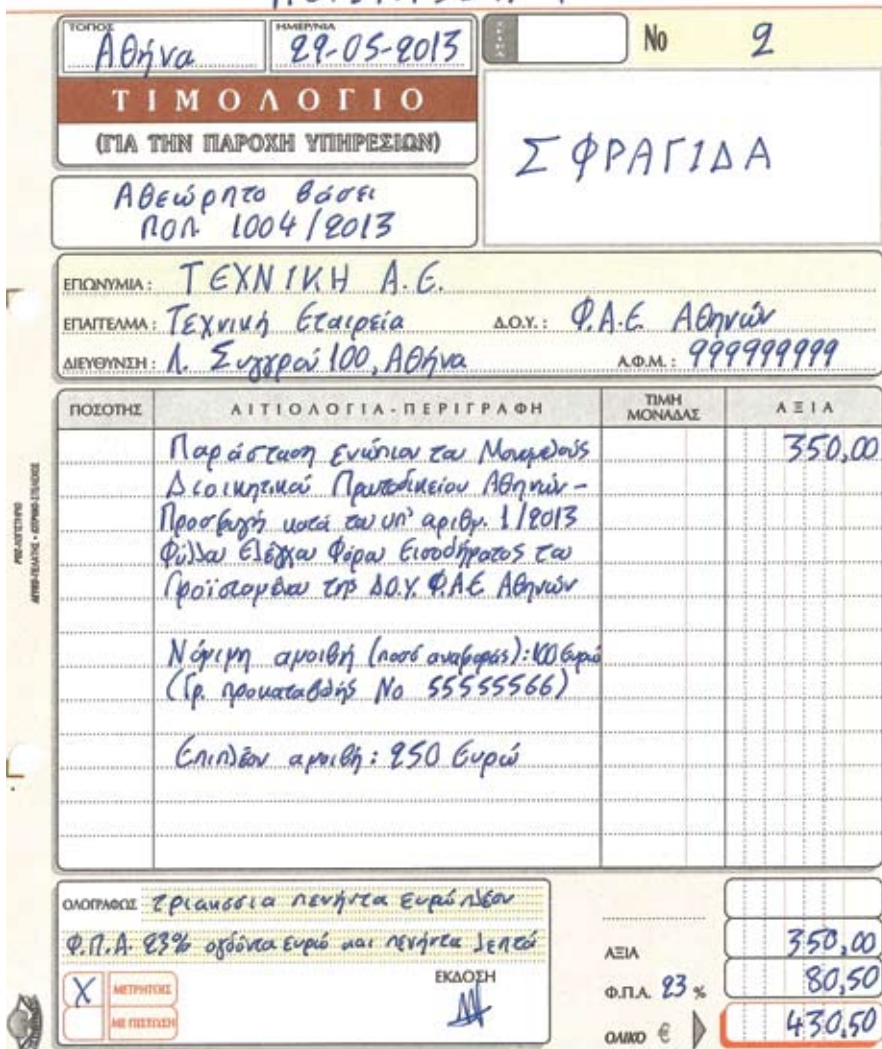 ΤΟΠΟΣ Αθήνα
ΗΜΕΡ/ΝΙΑ 29-05-2013
No 2
ΤΙΜΟΛΟΓΙΟ
(ΓΙΑ ΤΗΝ ΠΑΡΟΧΗ ΥΠΗΡΕΣΙΩΝ)
ΣΦΡΑΓΙΔΑ
Αθεώρητο βάσει
ΠΟΛ 1004/2013
ΕΠΩΝΥΜΙΑ: ΤΕΧΝΙΚΗ Α.Ε.
ΕΠΑΓΓΕΛΜΑ: Τεχνική Εταιρεία Δ.Ο.Υ.: Φ.Α.Ε. Αθηνών
ΔΙΕΥΘΥΝΣΗ: Λ. Συγγρού 100, Αθήνα Α.Φ.Μ.: 999999999
ΠΟΣΟΤΗΣ ΑΙΤΙΟΛΟΓΙΑ-ΠΕΡΙΓΡΑΦΗ ΤΙΜΗ ΜΟΝΑΔΑΣ ΑΞΙΑ
Παράσταση ενώπιον του Μονομελούς 350,00
Διοικητικού Πρωτοδικείου Αθηνών -
Προσφυγή κατά του υπ' αριθμ. 1/2013
Φύλλου Ελέγχου Φόρου Εισοδήματος του
Προϊσταμένου της Δ.Ο.Υ. Φ.Α.Ε Αθηνών
Νόμιμη αμοιβή (ποσό αναφοράς): 100 Ευρώ
(Γρ. προκαταβολής Νο 55555566)
Επιπλέον αμοιβή: 250 Ευρώ
ΟΛΟΓΡΑΦΩΣ τριακόσια πενήντα ευρώ πλέον
Φ.Π.Α. 23% ογδόντα ευρώ και πενήντα λεπτά
X ΜΕΤΡΗΤΟΙΣ
ΜΕ ΠΙΣΤΩΣΗ
ΕΚΔΟΣΗ
ΑΞΙΑ 350,00
Φ.Π.Α. 23 % 80,50
ΟΛΙΚΟ € 430,50